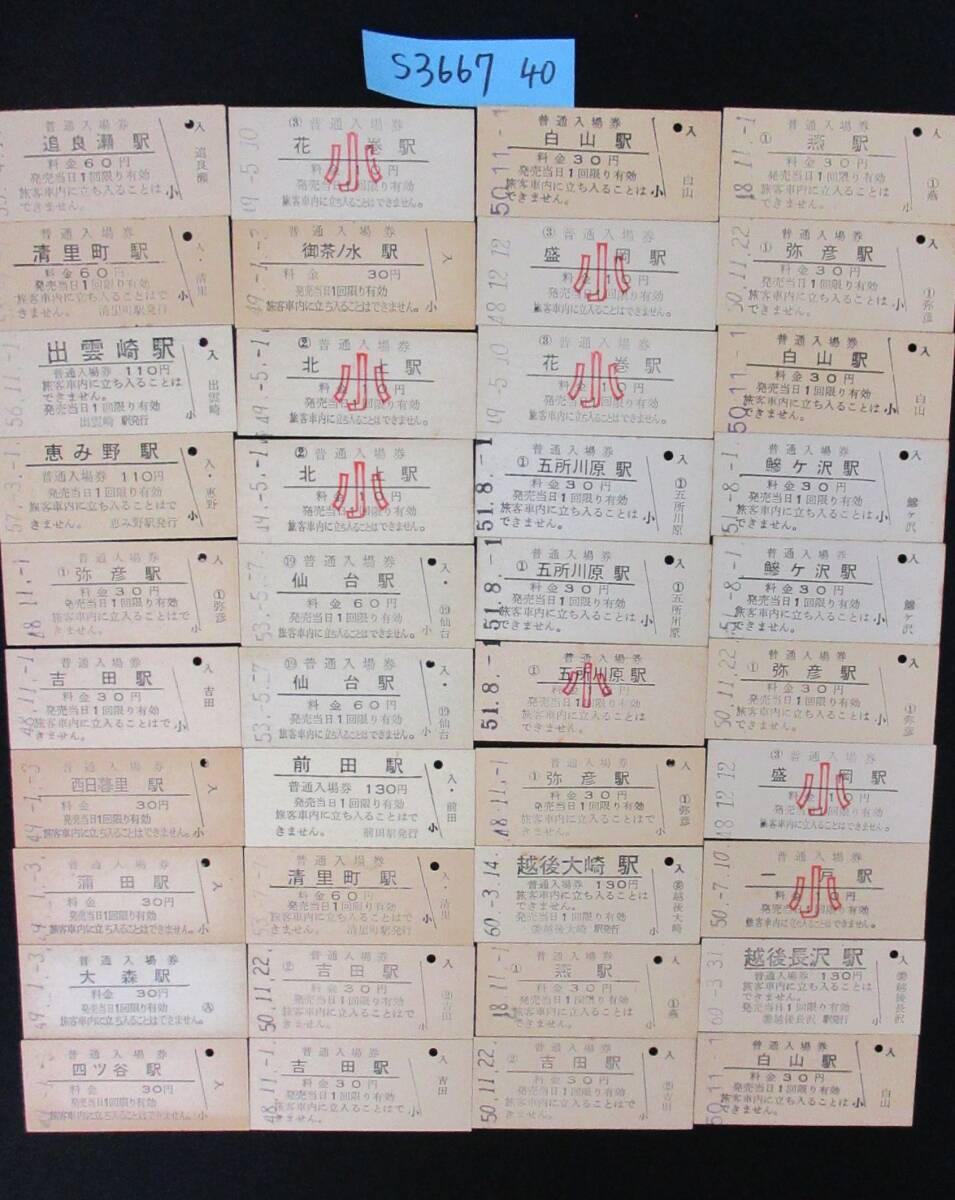 S3667 40
普通入場券
追良瀬駅
料金60円
発売当日1回限り有効
旅客車内に立ち入ることは
できません。
小
入
追良瀬
③ 普通入場券
花 巻駅
小
発売当日1回限り有効
旅客車内に立ち入ることはできません。
49.-5.10
普通入場券
白山駅
料金30円
発売当日1回限り有効
旅客車内に立ち入ることは
できません。
小
入
白山
50.11.-1
普通入場券
① 燕駅
料金30円
発売当日1回限り有効
旅客車内に立ち入ることは
できません。
小
入
①燕
48.11.-1
普通入場券
清里町駅
料金60円
発売当日1回限り有効
旅客車内に立ち入ることはで
きません。 清里町駅発行
小
入・清里
普通入場券
御茶ノ水 駅
料金 30円
発売当日1回限り有効
旅客車内に立ち入ることはできません。
小
入
③ 普通入場券
盛 岡駅
小
発売当日1回限り有効
旅客車内に立入ることはできません。
48.12.12
普通入場券
① 弥彦駅
料金30円
発売当日1回限り有効
旅客車内に立ち入ることは
できません。
小
入
①弥彦
50.11.22
出雲崎駅
普通入場券 110円
旅客車内に立ち入ることは
できません。
発売当日1回限り有効
出雲崎 駅発行
小
入
出雲崎
56.11.-1
② 普通入場券
北 上駅
小
発売当日1回限り有効
旅客車内に立ち入ることはできません。
49.-5.-1
③ 普通入場券
花 巻駅
小
発売当日1回限り有効
旅客車内に立ち入ることはできません。
49.-5.10
普通入場券
白山駅
料金30円
発売当日1回限り有効
旅客車内に立ち入ることは
できません。
小
入
白山
50.11.-1
恵み野駅
普通入場券 110円
発売当日1回限り有効
旅客車内に立ち入ることはで
きません。 恵み野駅発行
小
入・恵野
57.-3.-1
② 普通入場券
北 上駅
小
発売当日1回限り有効
旅客車内に立ち入ることはできません。
49.-5.-1
普通入場券
① 五所川原駅
料金30円
発売当日1回限り有効
旅客車内に立ち入ることは
できません。
小
入
①五所川原
51.8.-1
普通入場券
鰺ヶ沢駅
料金30円
発売当日1回限り有効
旅客車内に立ち入ることは
できません。
小
入
鰺ヶ沢
51.-8.-1
普通入場券
① 弥彦駅
料金30円
発売当日1回限り有効
旅客車内に立ち入ることは
できません。
小
入
①弥彦
48.11.-1
⑲ 普通入場券
仙台駅
料金 60円
発売当日1回限り有効
旅客車内に立ち入ることはできません。
小
入・⑲仙台
53.-5.-7
普通入場券
① 五所川原駅
料金30円
発売当日1回限り有効
旅客車内に立ち入ることは
できません。
小
入
①五所川原
51.8.-1
普通入場券
鰺ヶ沢駅
料金30円
発売当日1回限り有効
旅客車内に立ち入ることは
できません。
小
入
鰺ヶ沢
51.-8.-1
普通入場券
吉田駅
料金30円
発売当日1回限り有効
旅客車内に立入ることはで
きません。
小
入
吉田
48.11.-1
⑲ 普通入場券
仙台駅
料金 60円
発売当日1回限り有効
旅客車内に立ち入ることはできません。
小
入・⑲仙台
53.-5.-7
普通入場券
① 五所川原駅
小
発売当日1回限り有効
旅客車内に立ち入ることは
できません。
51.8.-1
普通入場券
① 弥彦駅
料金30円
発売当日1回限り有効
旅客車内に立ち入ることは
できません。
小
入
①弥彦
50.11.22
普通入場券
西日暮里 駅
料金 30円
発売当日1回限り有効
旅客車内に立ち入ることはできません。
小
入
49.-1.-3
前田駅
普通入場券 130円
発売当日1回限り有効
旅客車内に立ち入ることはで
きません。 前田駅発行
小
入・前田
普通入場券
① 弥彦駅
料金30円
発売当日1回限り有効
旅客車内に立ち入ることは
できません。
小
入
①弥彦
48.11.-1
③ 普通入場券
盛 岡駅
小
発売当日1回限り有効
旅客車内に立入ることはできません。
48.12.12
普通入場券
蒲田駅
料金 30円
発売当日1回限り有効
旅客車内に立ち入ることはできません。
小
入
49.-1.-3
普通入場券
清里町駅
料金60円
発売当日1回限り有効
旅客車内に立ち入ることはで
きません。 清里町駅発行
小
入・清里
越後大崎駅
普通入場券 130円
旅客車内に立ち入ることは
できません。
発売当日1回限り有効
越後大崎 駅発行
小
入
越後大崎
60.-3.14
普通入場券
一 戸駅
小
発売当日1回限り有効
旅客車内に立ち入ることはできません。
50.-7.10
普通入場券
大森駅
料金 30円
発売当日1回限り有効
旅客車内に立ち入ることはできません。
49.-1.-3
普通入場券
② 吉田駅
料金30円
発売当日1回限り有効
旅客車内に立ち入ることは
できません。
小
入
②吉田
50.11.22
普通入場券
① 燕駅
料金30円
発売当日1回限り有効
旅客車内に立ち入ることは
できません。
小
入
①燕
48.11.-1
越後長沢駅
普通入場券 130円
旅客車内に立ち入ることは
できません。
発売当日1回限り有効
越後長沢 駅発行
小
入
越後長沢
60.-3.31
普通入場券
四ツ谷駅
料金 30円
発売当日1回限り有効
旅客車内に立ち入ることはできません。
小
入
普通入場券
吉田駅
料金30円
発売当日1回限り有効
旅客車内に立入ることはで
きません。
小
入
吉田
48.11.-1
普通入場券
② 吉田駅
料金30円
発売当日1回限り有効
旅客車内に立ち入ることは
できません。
小
入
②吉田
50.11.22
普通入場券
白山駅
料金30円
発売当日1回限り有効
旅客車内に立ち入ることは
できません。
小
入
白山
50.11.-1